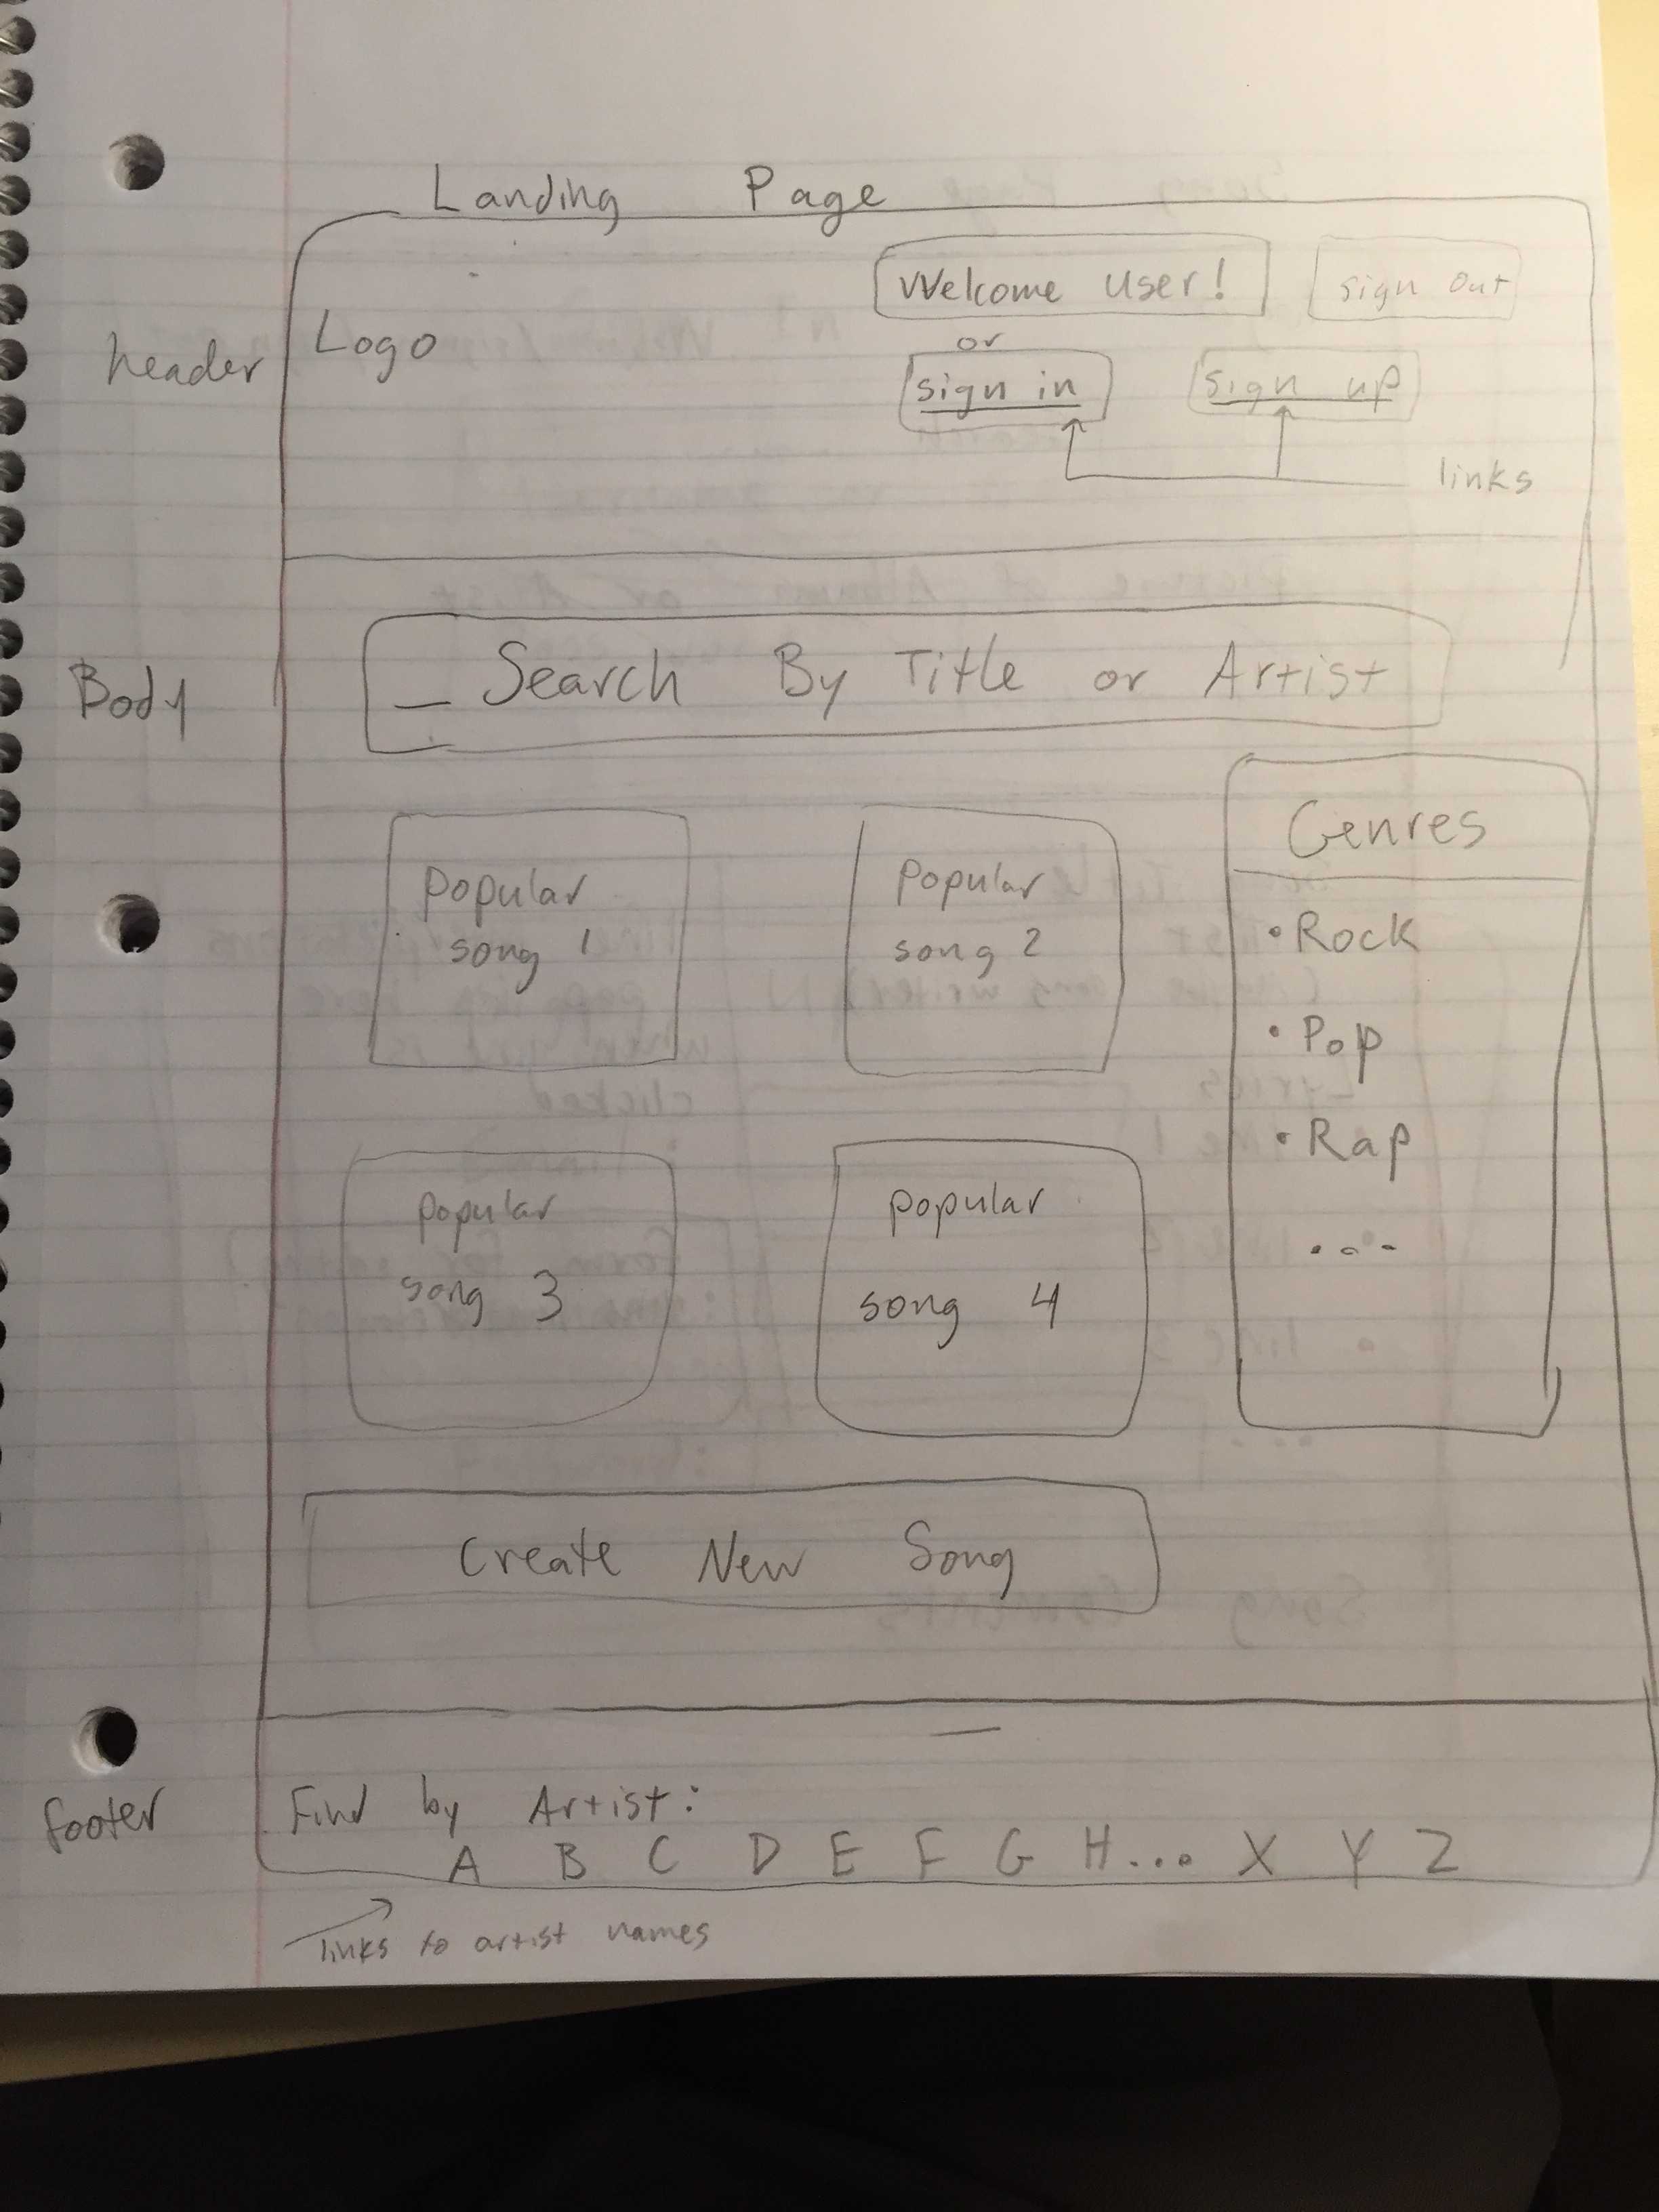 Landing Page
Welcome User! sign out
header Logo
or
sign in sign up
links
Body Search By Title or Artist
Genres
popular
song 1
popular
song 2
• Rock
• Pop
• Rap
...
popular
song 3
popular
song 4
Create New Song
footer
Find by Artist:
A B C D E F G H... X Y Z
links to artist names